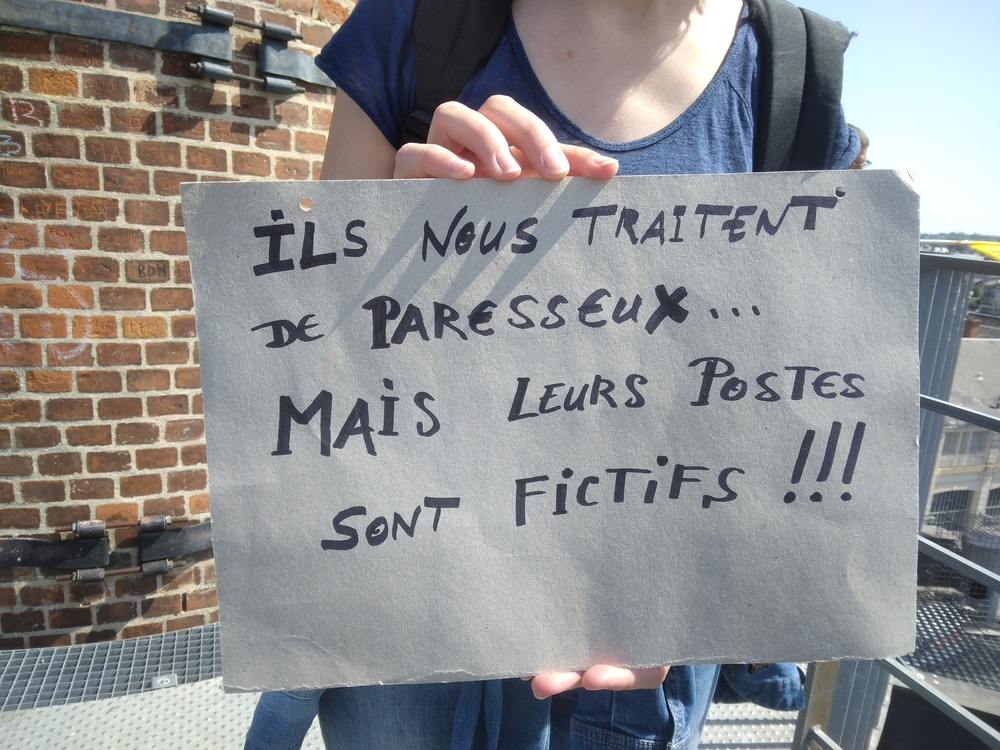 ILS NOUS TRAITENT
DE PARESSEUX...
MAIS LEURS POSTES
SONT FICTIFS !!!
BDM